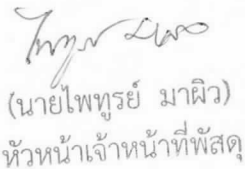 (นายไพทูรย์ มาผิว)
หัวหน้าเจ้าหน้าที่พัสดุ